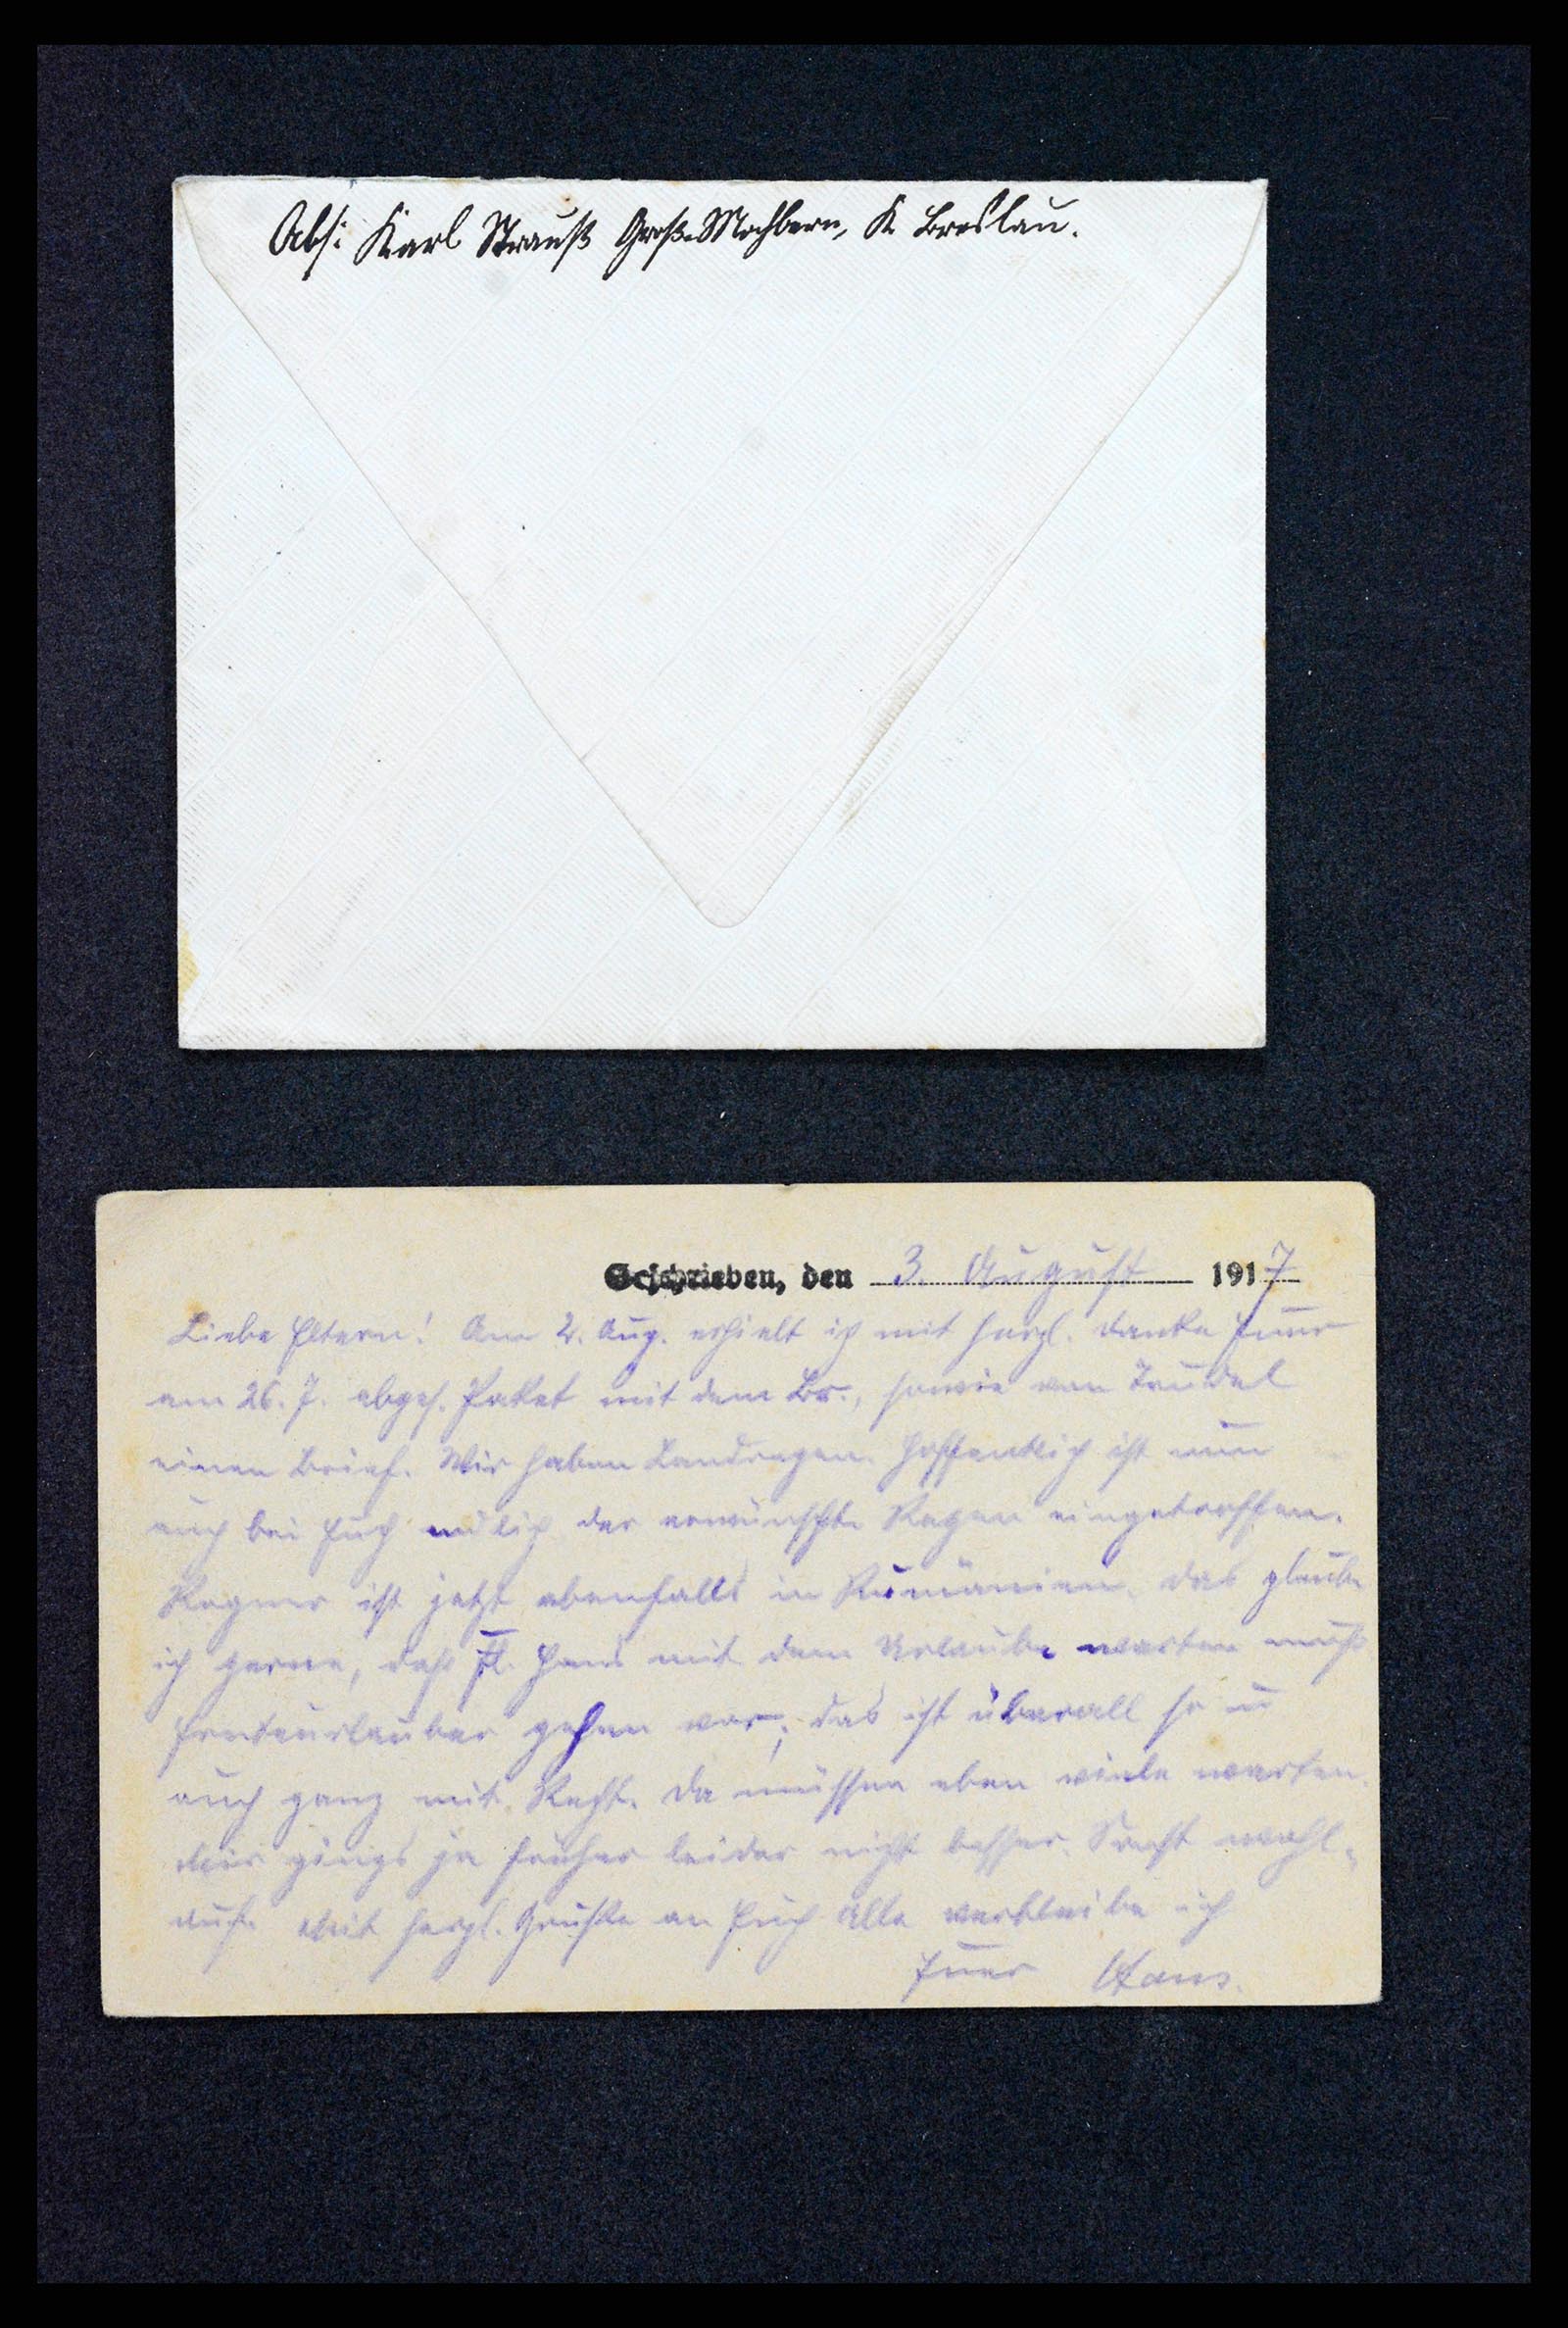 Abs: Karl Strauß Groß-Mochbern, K. Breslau.
Geschrieben, den 3. August 1917
Liebe Eltern! Am 2. Aug. erhielt ich mit herzl. Danke Euer
am 26. 7. abges. Paket mit dem Br., sowie von Trudel
einen Brief. Wir haben Landregen. Hoffentlich ist nun
auch bei Euch endlich der erwünschte Regen eingetroffen.
ist jetzt ebenfalls in Rumänien. Das glaube
ich gerne, daß Hans mit dem Urlaube warten muß
Ernteurlauber gehen vor; das ist überall so u
auch ganz mit Recht. Da müssen eben viele warten.
Mir gings ja früher leider nicht besser. Lebt wohl-
auf. Mit herzl. Gruße an Euch Alle verbleibe ich
Euer Hans.